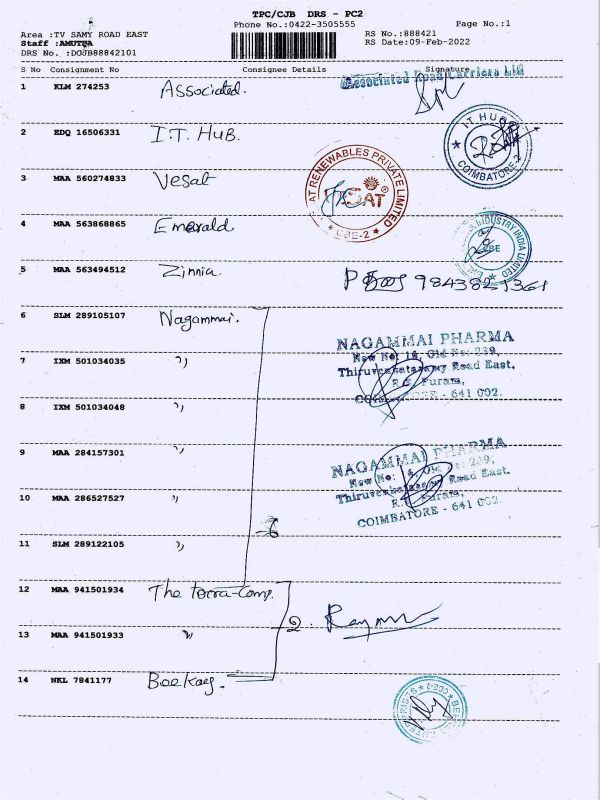 TPC/CJB DRS - PC2
Phone No.:0422-3505555
Page No.:1
Area :TV SAMY ROAD EAST
RS No.:888421
Staff :AMUTHA
RS Date:09-Feb-2022
DRS No. :DGJB88842101
S No Consignment No Consignee Details Signature
Associated Road Carriers Ltd
1 KLM 274253 Associated.
2 EDQ 16506331 I.T. HUB.
IT HUB
COIMBATORE-2
3 MAA 560274833 Vesat
AT RENEWABLES PRIVATE LIMITED
CBE-2
4 MAA 563868865 Emerald
INDUSTRY INDIA LIMITED
5 MAA 563494512 Zinnia
6 SLM 289105107 Nagammai.
NAGAMMAI PHARMA
New No: 16, Old No: 239,
Thiruvenkatasamy Road East,
R.S. Puram,
COIMBATORE - 641 002.
7 IXM 501034035 "
8 IXM 501034048 "
9 MAA 284157301 "
NAGAMMAI PHARMA
New No: 16, Old No: 239,
Thiruvenkatasamy Road East,
R.S. Puram,
COIMBATORE - 641 002.
10 MAA 286527527 "
6
11 SLM 289122105 "
12 MAA 941501934 The terra-Comp.
2.
13 MAA 941501933 "
14 NKL 7841177 Beekay.